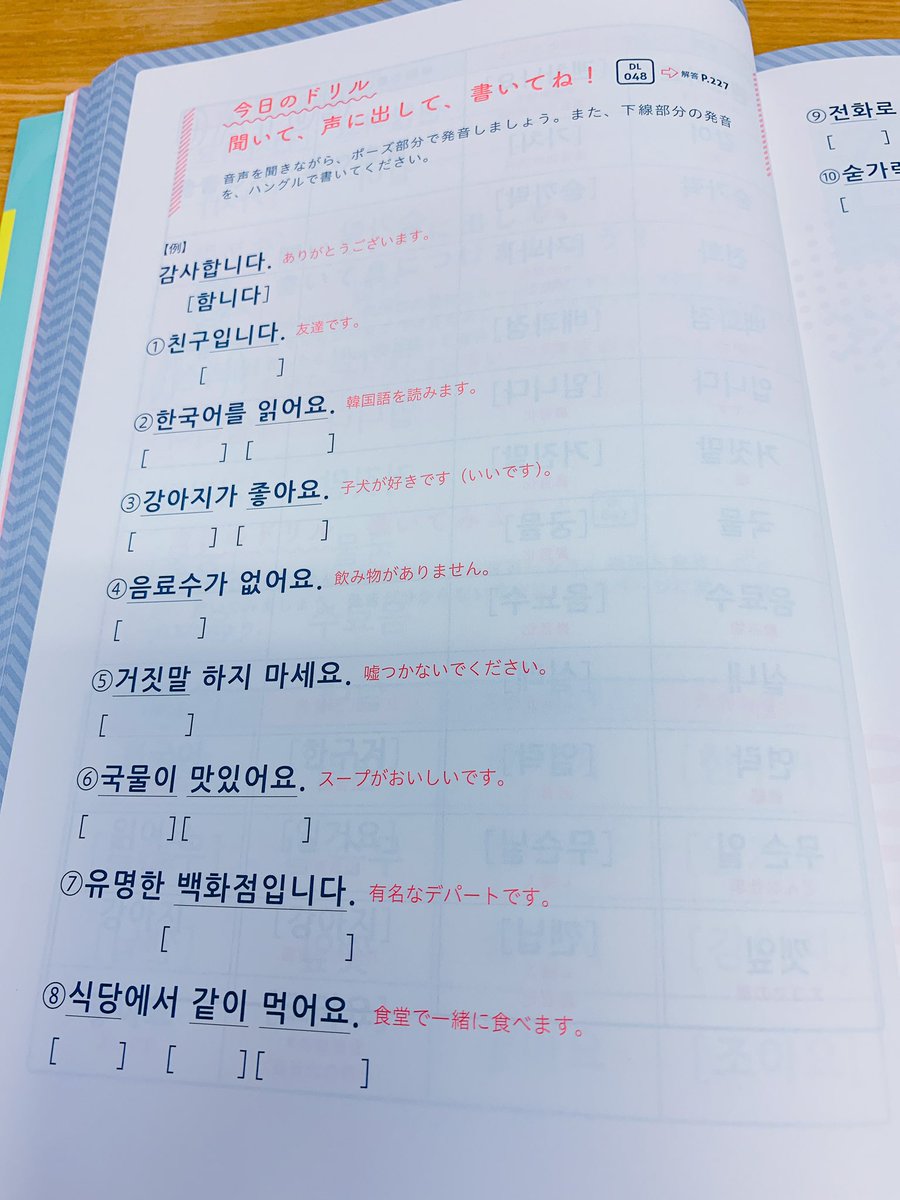 今日のドリル
聞いて、声に出して、書いてね！
DL 048 ⇨ 解答 P.227
音声を聞きながら、ポーズ部分で発音しましょう。また、下線部分の発音
を、ハングルで書いてください。
【例】
감사합니다. ありがとうございます。
[함니다]
①친구입니다. 友達です。
[ ]
②한국어를 읽어요. 韓国語を読みます。
[ ] [ ]
③강아지가 좋아요. 子犬が好きです（いいです）。
[ ] [ ]
④음료수가 없어요. 飲み物がありません。
[ ]
⑤거짓말 하지 마세요. 嘘つかないでください。
[ ]
⑥국물이 맛있어요. スープがおいしいです。
[ ][ ]
⑦유명한 백화점입니다. 有名なデパートです。
[ ]
⑧식당에서 같이 먹어요. 食堂で一緒に食べます。
[ ] [ ][ ]
⑨전화로
[ ]
⑩숟가락
[